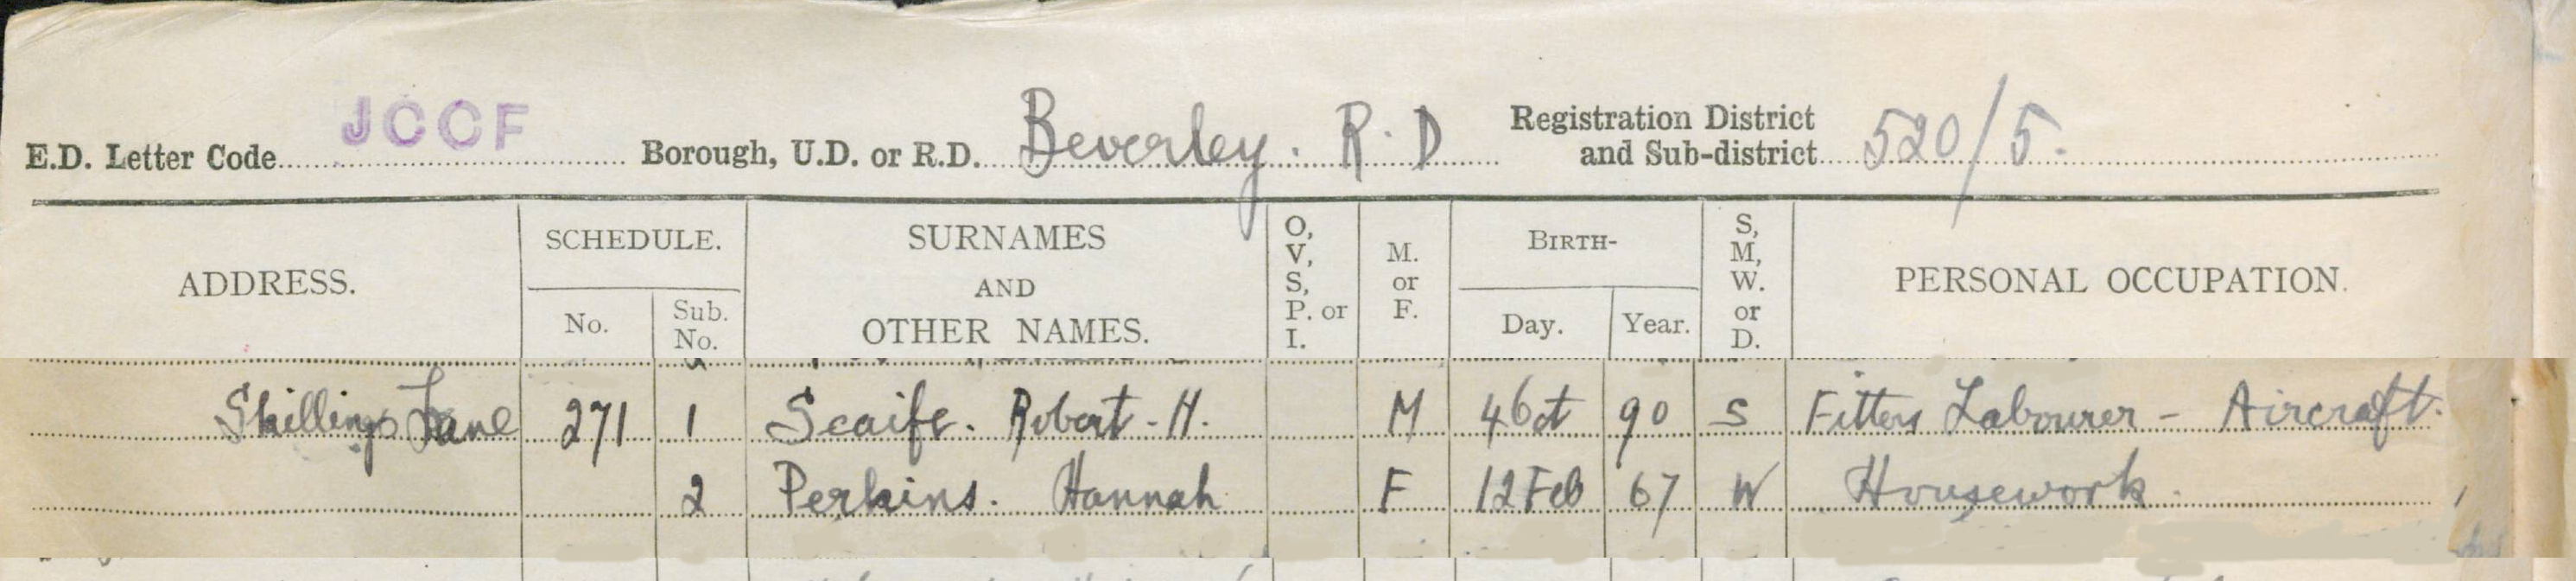 E.D. Letter Code JCCF Borough, U.D. or R.D. Beverley. R.D Registration District and Sub-district 520/5.
ADDRESS. SCHEDULE. No. Sub. No. SURNAMES AND OTHER NAMES. O, V, S, P. or I. M. or F. BIRTH- Day. Year. S, M, W. or D. PERSONAL OCCUPATION.
Skillings Lane 271 1 Scaife. Robert. H. M 4 Oct 90 S Fitters Labourer - Aircraft.
2 Perkins. Hannah F 12 Feb 67 W Housework.